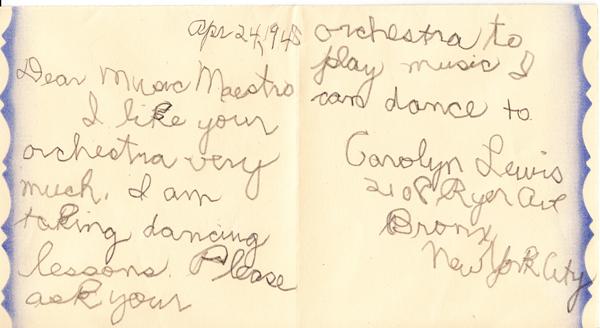 Apr 24, 1945
Dear Music Maestro
I like your
orchestra very
much. I am
taking dancing
lessons. Please
ask your
orchestra to
play music I
can dance to
Carolyn Lewis
2108 Ryer Ave
Bronx,
New York City